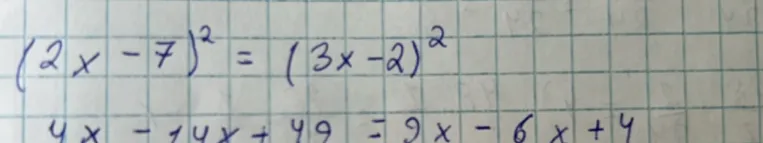 (2x - 7)² = (3x - 2)²
4x - 14x + 49 = 9x - 6x + 4